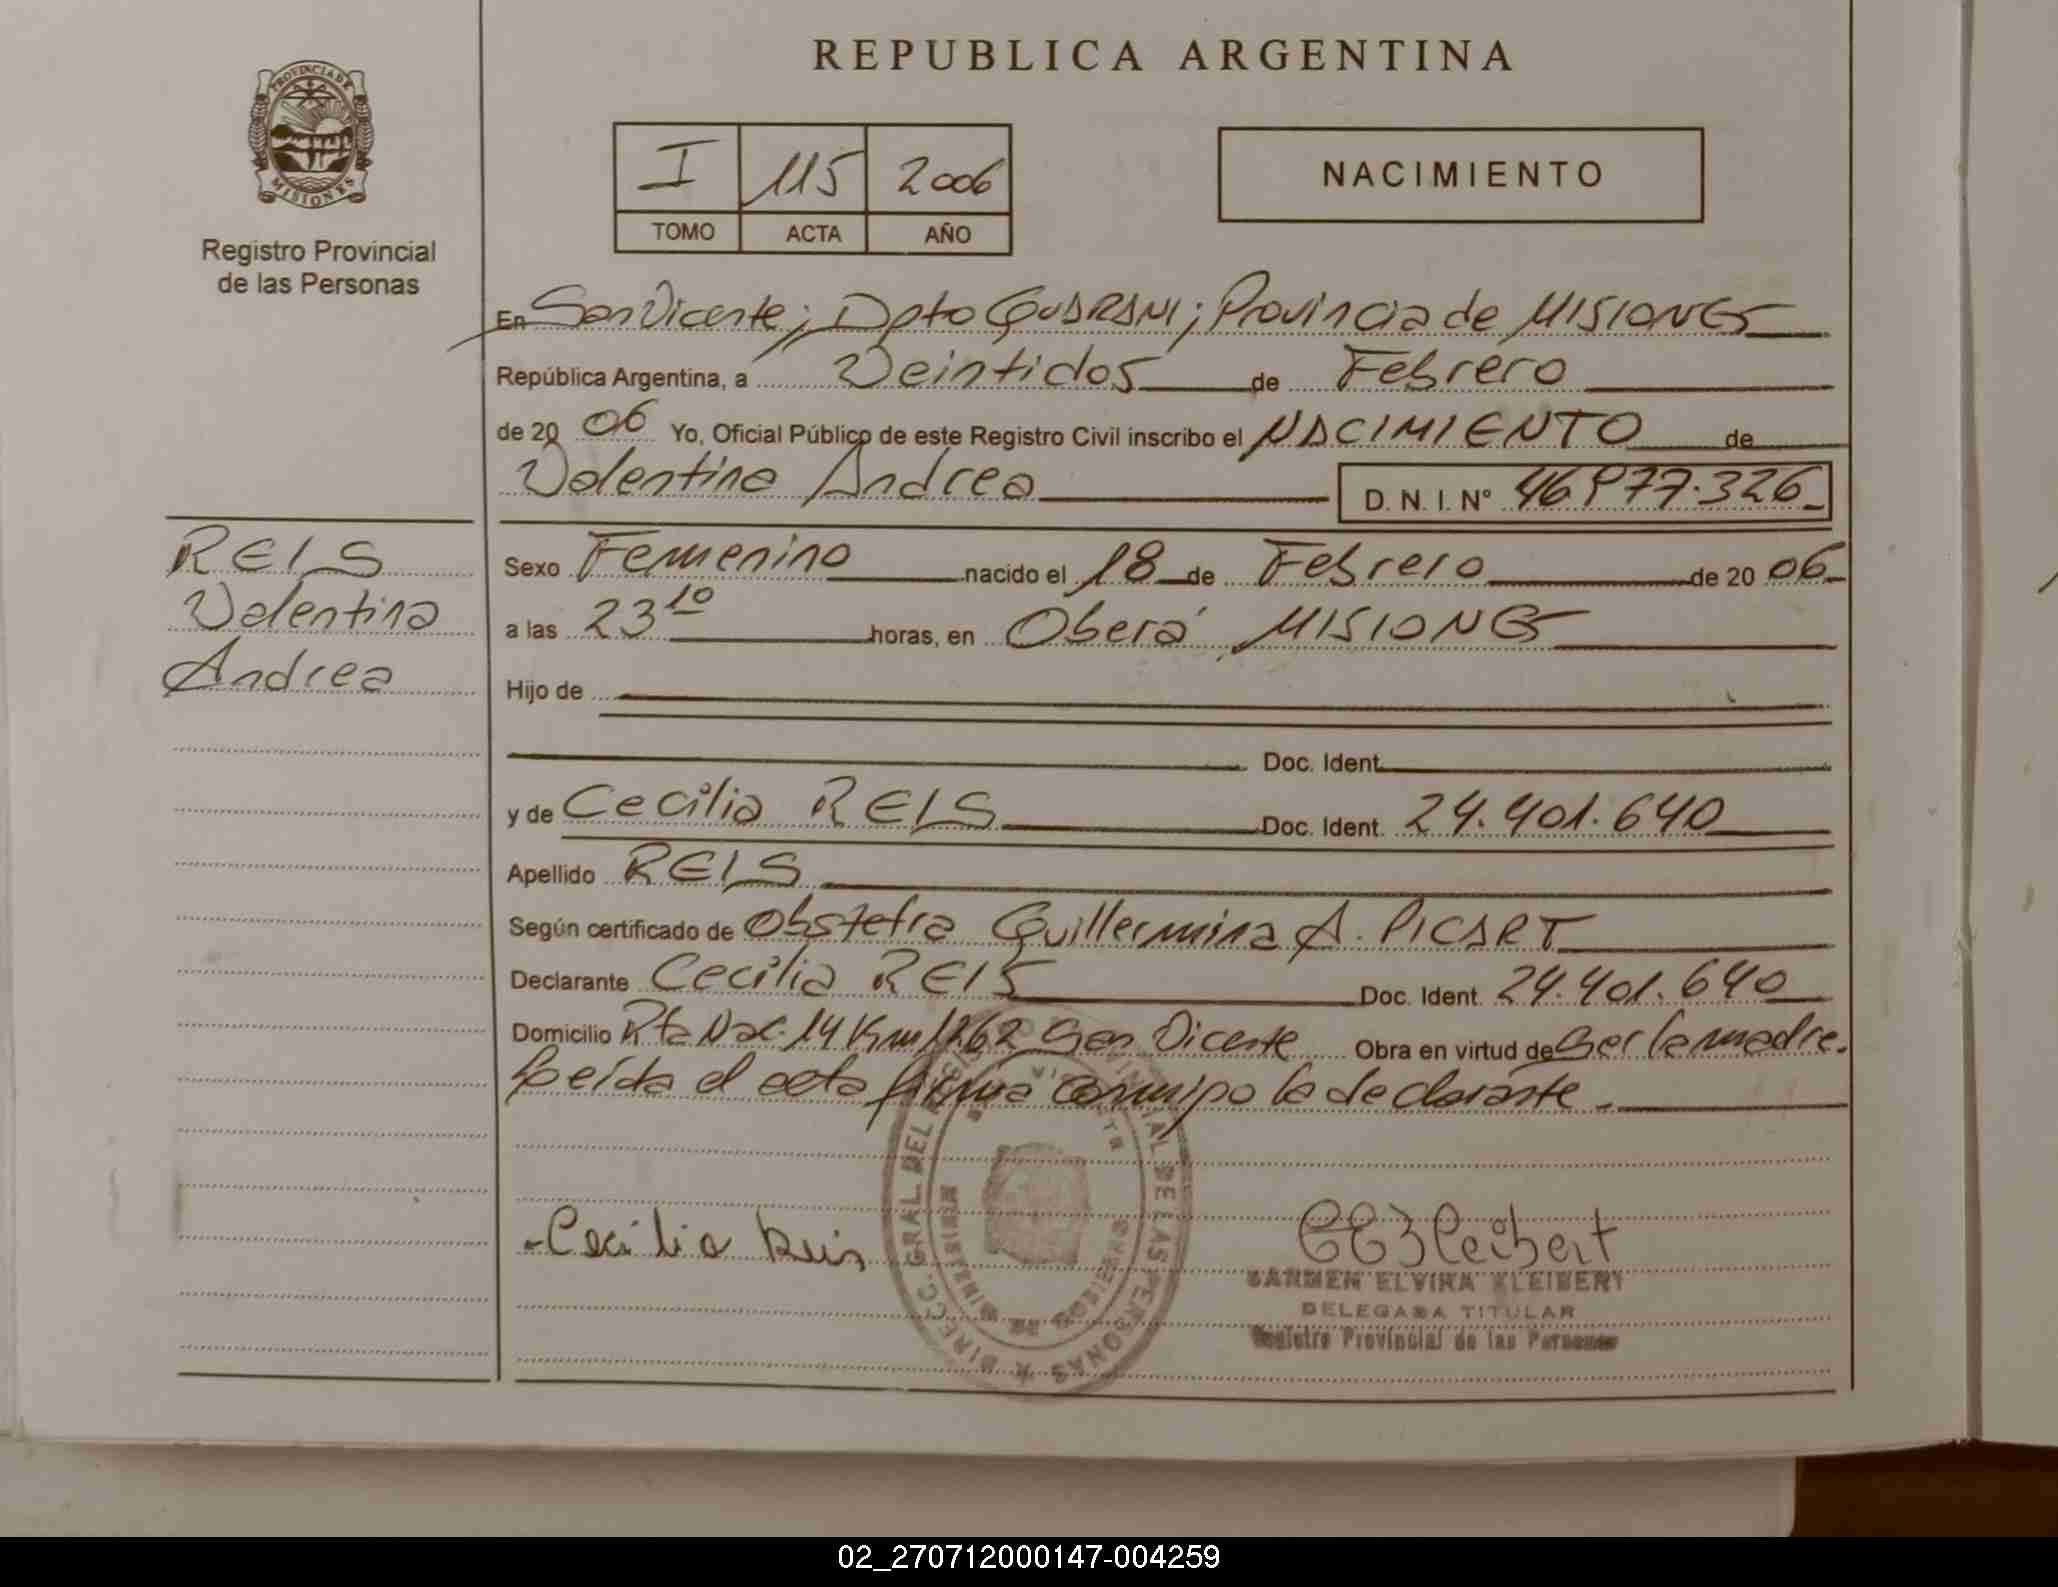 REPUBLICA ARGENTINA
PROVINCIA DE MISIONES
Registro Provincial
de las Personas
I 115 2006
TOMO ACTA AÑO
NACIMIENTO
En San Vicente; Dpto GUARANI; Provincia de MISIONES
República Argentina, a Veintidos de Febrero
de 20 06 Yo, Oficial Público de este Registro Civil inscribo el NACIMIENTO de
Valentina Andrea D. N. I. Nº 46.977.326
REIS
Valentina
Andrea
Sexo Femenino nacido el 18 de Febrero de 20 06
a las 23 10 horas, en Oberá MISIONES
Hijo de
Doc. Ident.
y de Cecilia REIS Doc. Ident. 24.401.640
Apellido REIS
Según certificado de Obstetra Guillermina A. PICART
Declarante Cecilia REIS Doc. Ident. 24.401.640
Domicilio Rta Nac. 14 Km 1262 San Vicente Obra en virtud de Ser la madre.
Leída el acta firma conmigo la declarante.
DIRECC. GRAL. DEL REGISTRO PROVINCIAL DE LAS PERSONAS
Cecilia Reis
CARMEN ELVIRA KLEIBERT
DELEGADA TITULAR
Registro Provincial de las Personas
02_270712000147-004259